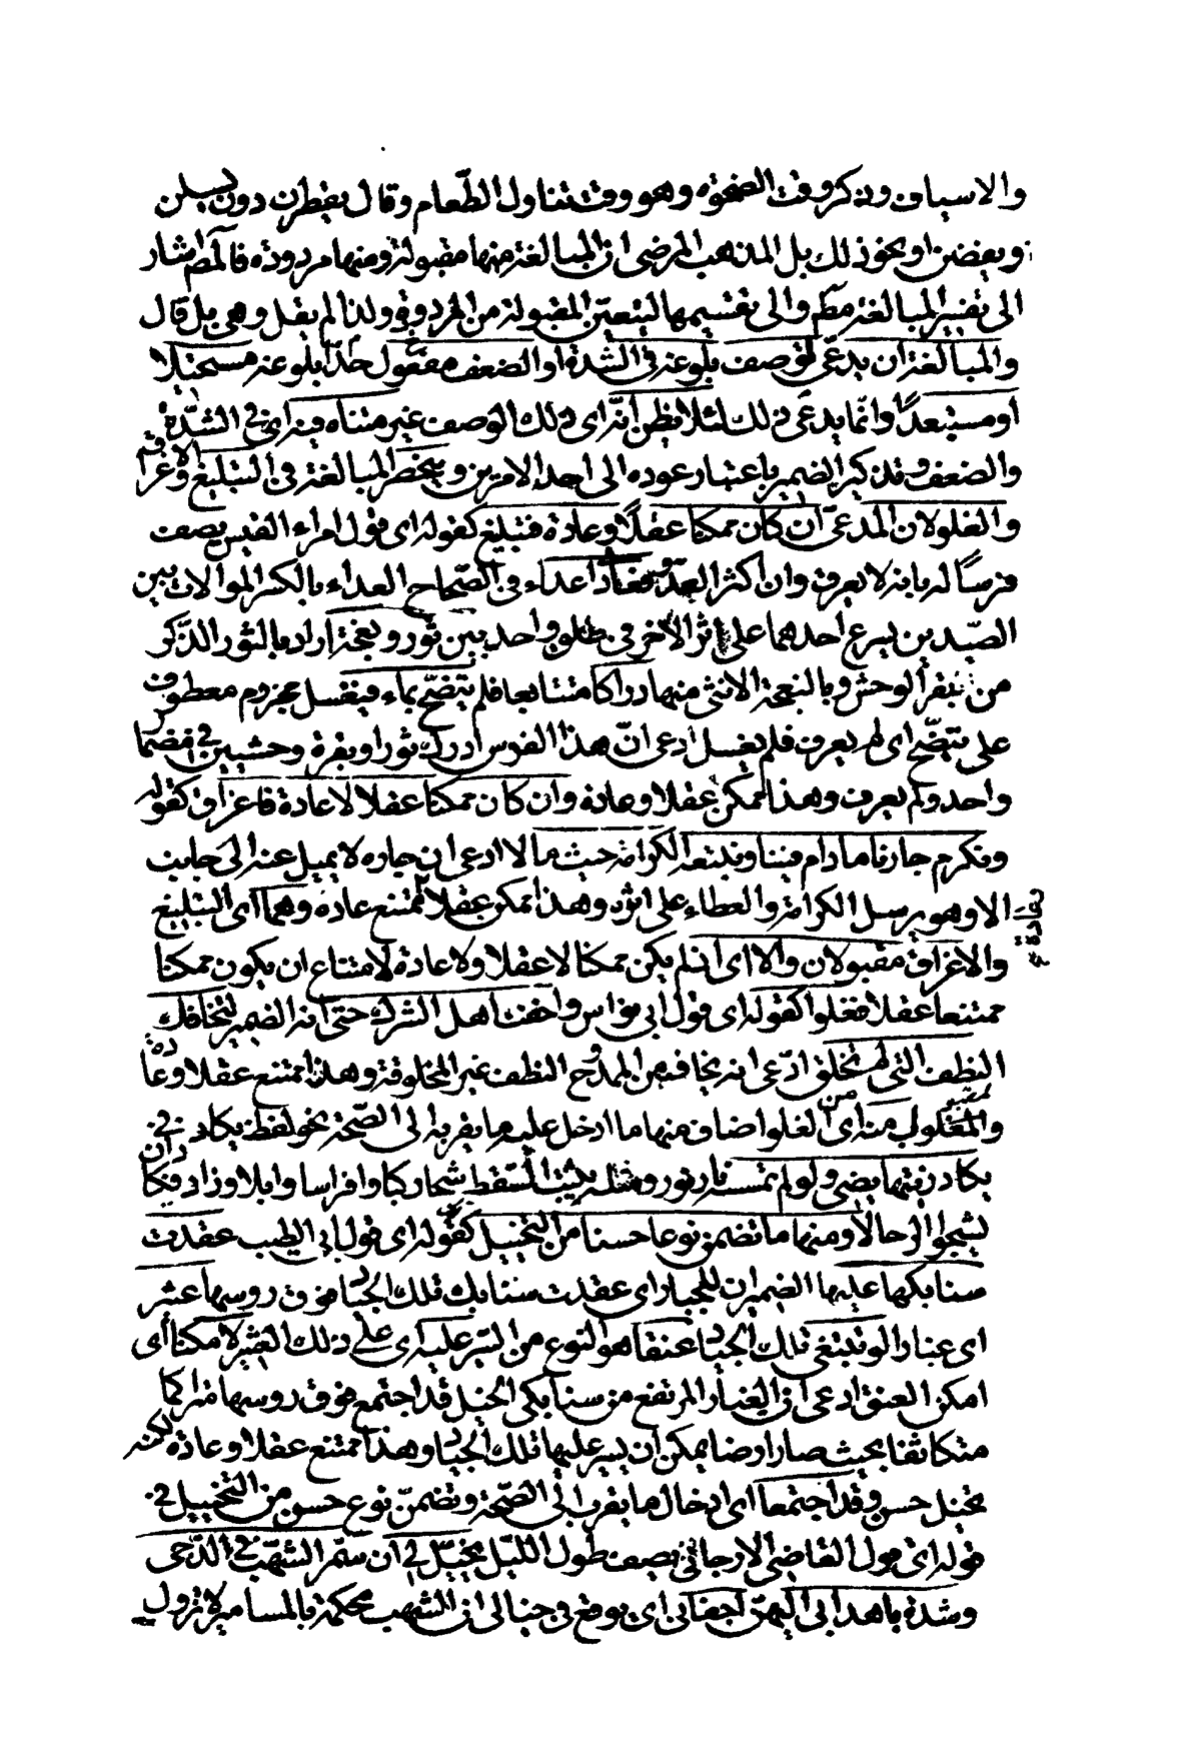 والاسياف وذكر وقت الضحوة وهو وقت تناول الطّعام وقال يقطرن دون يسلن
ويفضن او نحو ذلك بل المذهب المرضى ان المبالغة منها مقبولة ومنها مردودة فالمص اشار
الى تفسير المبالغة مطم والى تقسيمها ليتعيّن المقبولة من المردودة ولذا لم يقل وهى بل قال
والمبالغة ان يدعى لوصف بلوغه فى الشدة او الضعف مفعول حدّا بلوغه مستحيلا
او مستبعدًا وانّما يدعى ذلك لئلا يظن انّه اى ذلك الوصف غير متناه فيه اى فى الشدّة
والضعف وتذكير الضمير باعتبار عوده الى احد الامرين وينحصر المبالغة فى التبليغ والاغراق
والغلو لان المدعى ان كان ممكنا عقلًا وعادة فتبليغ كقوله اى قول امرء القيس يصف
فرسًا له بانه لا يعرق وان اكثر العدو فعادا عداء فى الصّحاح العداء بالكسر الموالات بين
الصّيدين يسرع احدهما على اثر الآخر فى طلق واحد بين ثور ونعجة اراد بالثور الذّكر
من بقر الوحش وبالنعجة الانثى منها دراكا متتابعا فلم ينضح بماء فيغسل مجزوم معطوف
على ينضح اى لم يعرق فلم يغسل ادعى انّ هذا الفرس ادرك ثورا وبقرة وحشيين فى مضمار
واحد ولم يعرق وهذا ممكن عقلا وعادة وان كان ممكنا عقلا لا عادة فاغراق كقوله
ونكرم جارنا ما دام فينا ونتبعه الكرامة حيث مالا ادعى ان جاره لا يميل عنه الى جانب
الا وهو يرسل الكرامة والعطاء على اثره وهذا ممكن عقلا ممتنع عادة وهما اى التبليغ
والاغراق مقبولان والا اى ان لم يكن ممكنا لا عقلا ولا عادة لامتناع ان يكون ممكنا
ممتنعا عقلا فغلو كقوله اى قول ابى نواس واخفت اهل الشرك حتى انه الضمير لتخافك
النطف التى لم تخلق ادّعى انه يخافه من الممدوح النطف غير المخلوقة وهذا ممتنع عقلا وعادة
والمقبول منه اى من الغلو اصناف منها ما ادخل عليه ما يقربه الى الصّحة نحو لفظ يكاد فى
يكاد زيتها يضئ ولو لم تمسسه نار نور ومثله
لشجوا الرحالا ومنها ما تضمن نوعا حسنا من التخييل كقوله اى قول ابى الطيب عقدت
سنابكها عليها الضميران للجياد اى عقدت سنابك تلك الجياد فوق رؤسها عثير
اى غبارا لو تبتغى تلك الجياد عنقا هو النوع من السّير عليه اى على ذلك العثير لامكنا اى
امكن العنق ادعى ان الغبار المرتفع من سنابك الخيل قد اجتمع فوق رؤسها متراكما
متكاثفا بحيث صار ارضا يمكن ان يسير عليها تلك الجياد وهذا ممتنع عقلا وعادة لكنه
تخيل حسن وقد اجتمعا اى ادخال ما يقرب الى الصّحة وتضمن نوع حسن من التخييل فى
قوله اى قول القاضى الارجانى يصف طول الليل يخيّل لى ان سمّر الشهب فى الدّجى
وشدّت باهدابى اليهنّ اجفانى اى يوقع فى خيالى ان الشهب محكمة بالمسامير لا تزول